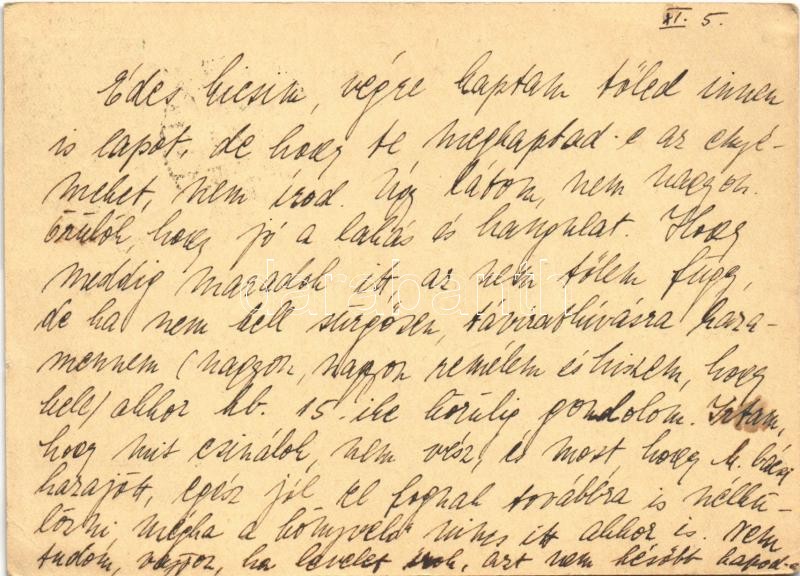 XI. 5.
Édes kicsim, végre kaptam tőled innen
is lapot, de hogy te megkaptad-e az enyé-
meket, nem írod. Úgy látom, nem nagyon
örülök, hogy jó a lakás és hangulat. Hogy
meddig maradok itt, az nem tőlem függ,
de ha nem kell sürgősen, távirathívásra haza-
mennem (nagyon, nagyon remélem és hiszem, hogy
kell) akkor kb. 15.-ike körülig gondolom. Írtam,
hogy mit csinálok, nem vész, és most, hogy M. bácsi
hazajött, egész jól el fognak továbbra is nélkü-
lözni, mégha a könyvelő nincs itt akkor is. Nem
tudom, vajjon, ha levelet írok, azt nem később kapod-e
darabanth